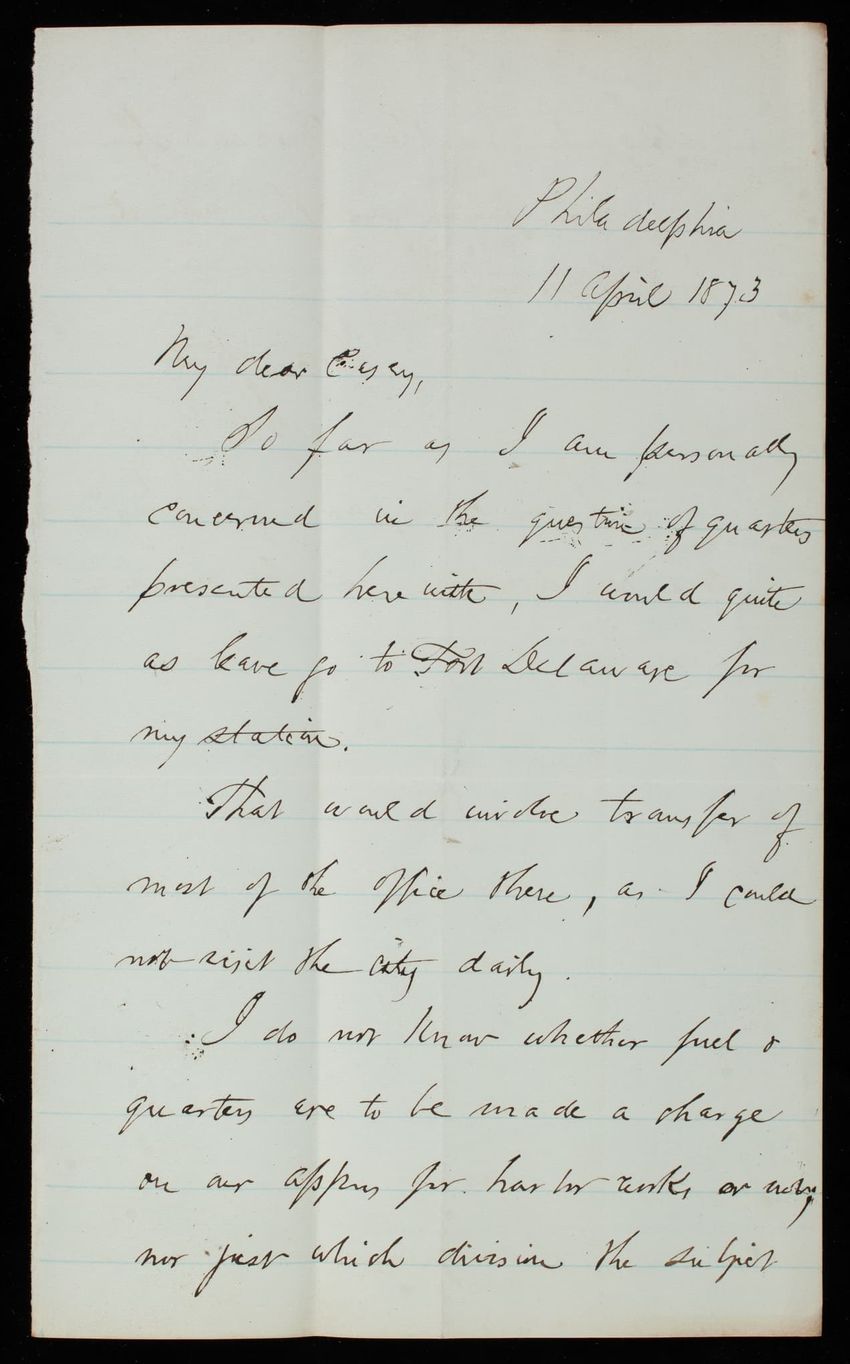 Philadelphia
11 April 1873
My dear Casey,
So far as I am personally
concerned in the question of quarters
presented herewith, I would quite
as leave go to Fort Delaware for
my station.
That would involve transfer of
most of the office there, as I could
not visit the city daily.
I do not know whether fuel &
quarters are to be made a charge
on our apprns for harbor works or not;
nor just which division the subject